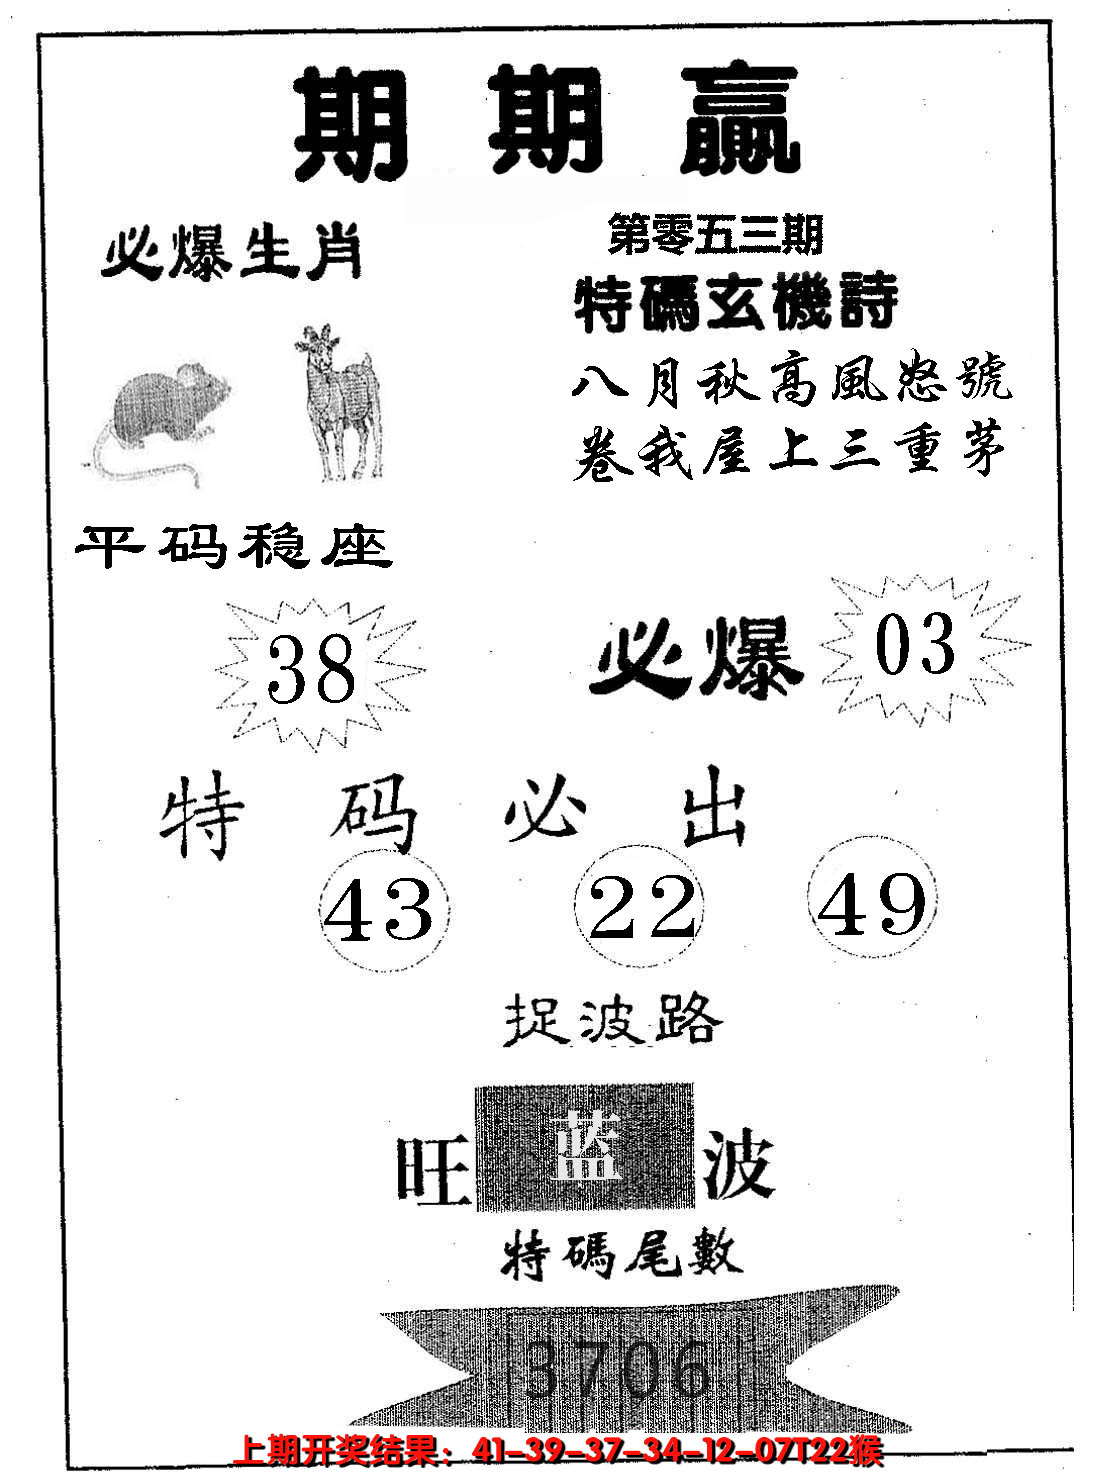 期期赢
必爆生肖
第零五三期
特碼玄機詩
八月秋高風怒號
卷我屋上三重茅
平码稳座
38
必爆
03
特码必出
43 22 49
捉波路
旺蓝波
特碼尾數
3706
上期开奖结果：41-39-37-34-12-07T22猴